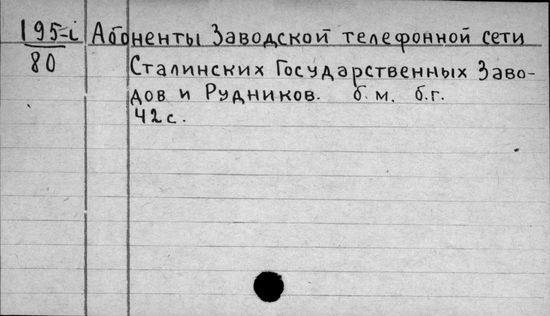 195-i
80
Абоненты Заводской телефонной сети
Сталинских Государственных Заво-
дов и Рудников. б.м. б.г.
42 с.